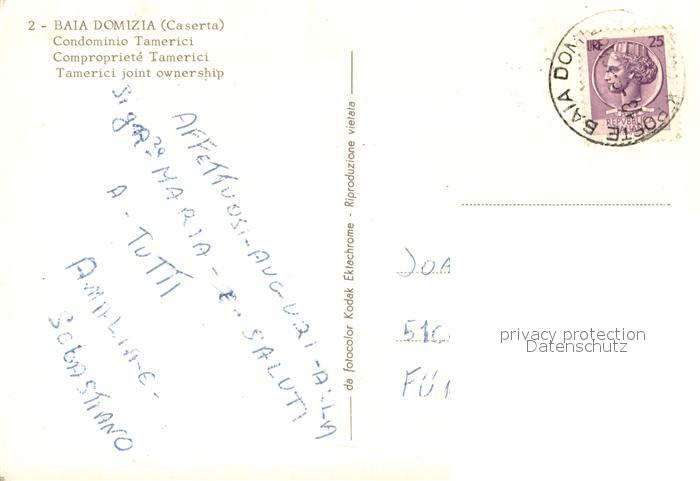 2 - BAIA DOMIZIA (Caserta)
Condominio Tamerici
Comproprieté Tamerici
Tamerici joint ownership
AFFETTUOSI-AUGURI-ALLA
MARIA-E-SALUTI
A-TUTTI
SEBASTIANO
da fotocolor Kodak Ektachrome - Riproduzione vietata
LIRE 25
REPVBBLICA
POSTE BAIA DOM
JOA
510
FÜ
privacy protection
Datenschutz